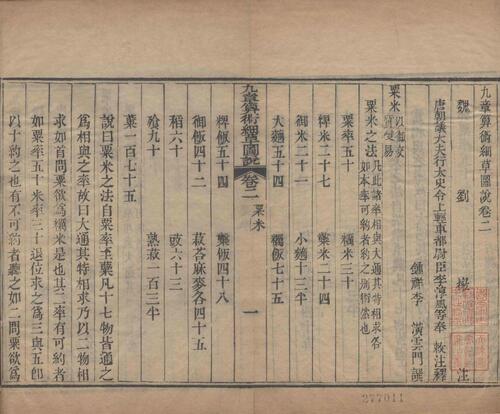 九章算術細草圖說卷二
魏 劉 徽 注
唐朝議大夫行太史令上輕車都尉臣李淳風等奉 敕注釋
鍾祥李 潢雲門譔
粟米 以御交質變易
粟米之法 凡此諸率相與大通其特相求各如本率可約者約之別術然也
粟率五十 糲米三十
粺米二十七 糳米二十四
御米二十一 小䵂十三半
大䵂五十四 糲飯七十五
九章算術細草圖說 卷二 粟米 一
粺飯五十四 糳飯四十八
御飯四十二 菽荅麻麥各四十五
稻六十 豉六十三
飧九十 熟菽一百三半
櫱一百七十五
說曰粟米之法自粟率至櫱凡十七物皆通之
為相與之率故曰大通其特相求乃以二物相
求如首問粟欲為糲米是也其二率有可約者
如粟率五十米率三十退位求之為三與五即
以十約之也有不可約者聽之如二問粟欲為
277011